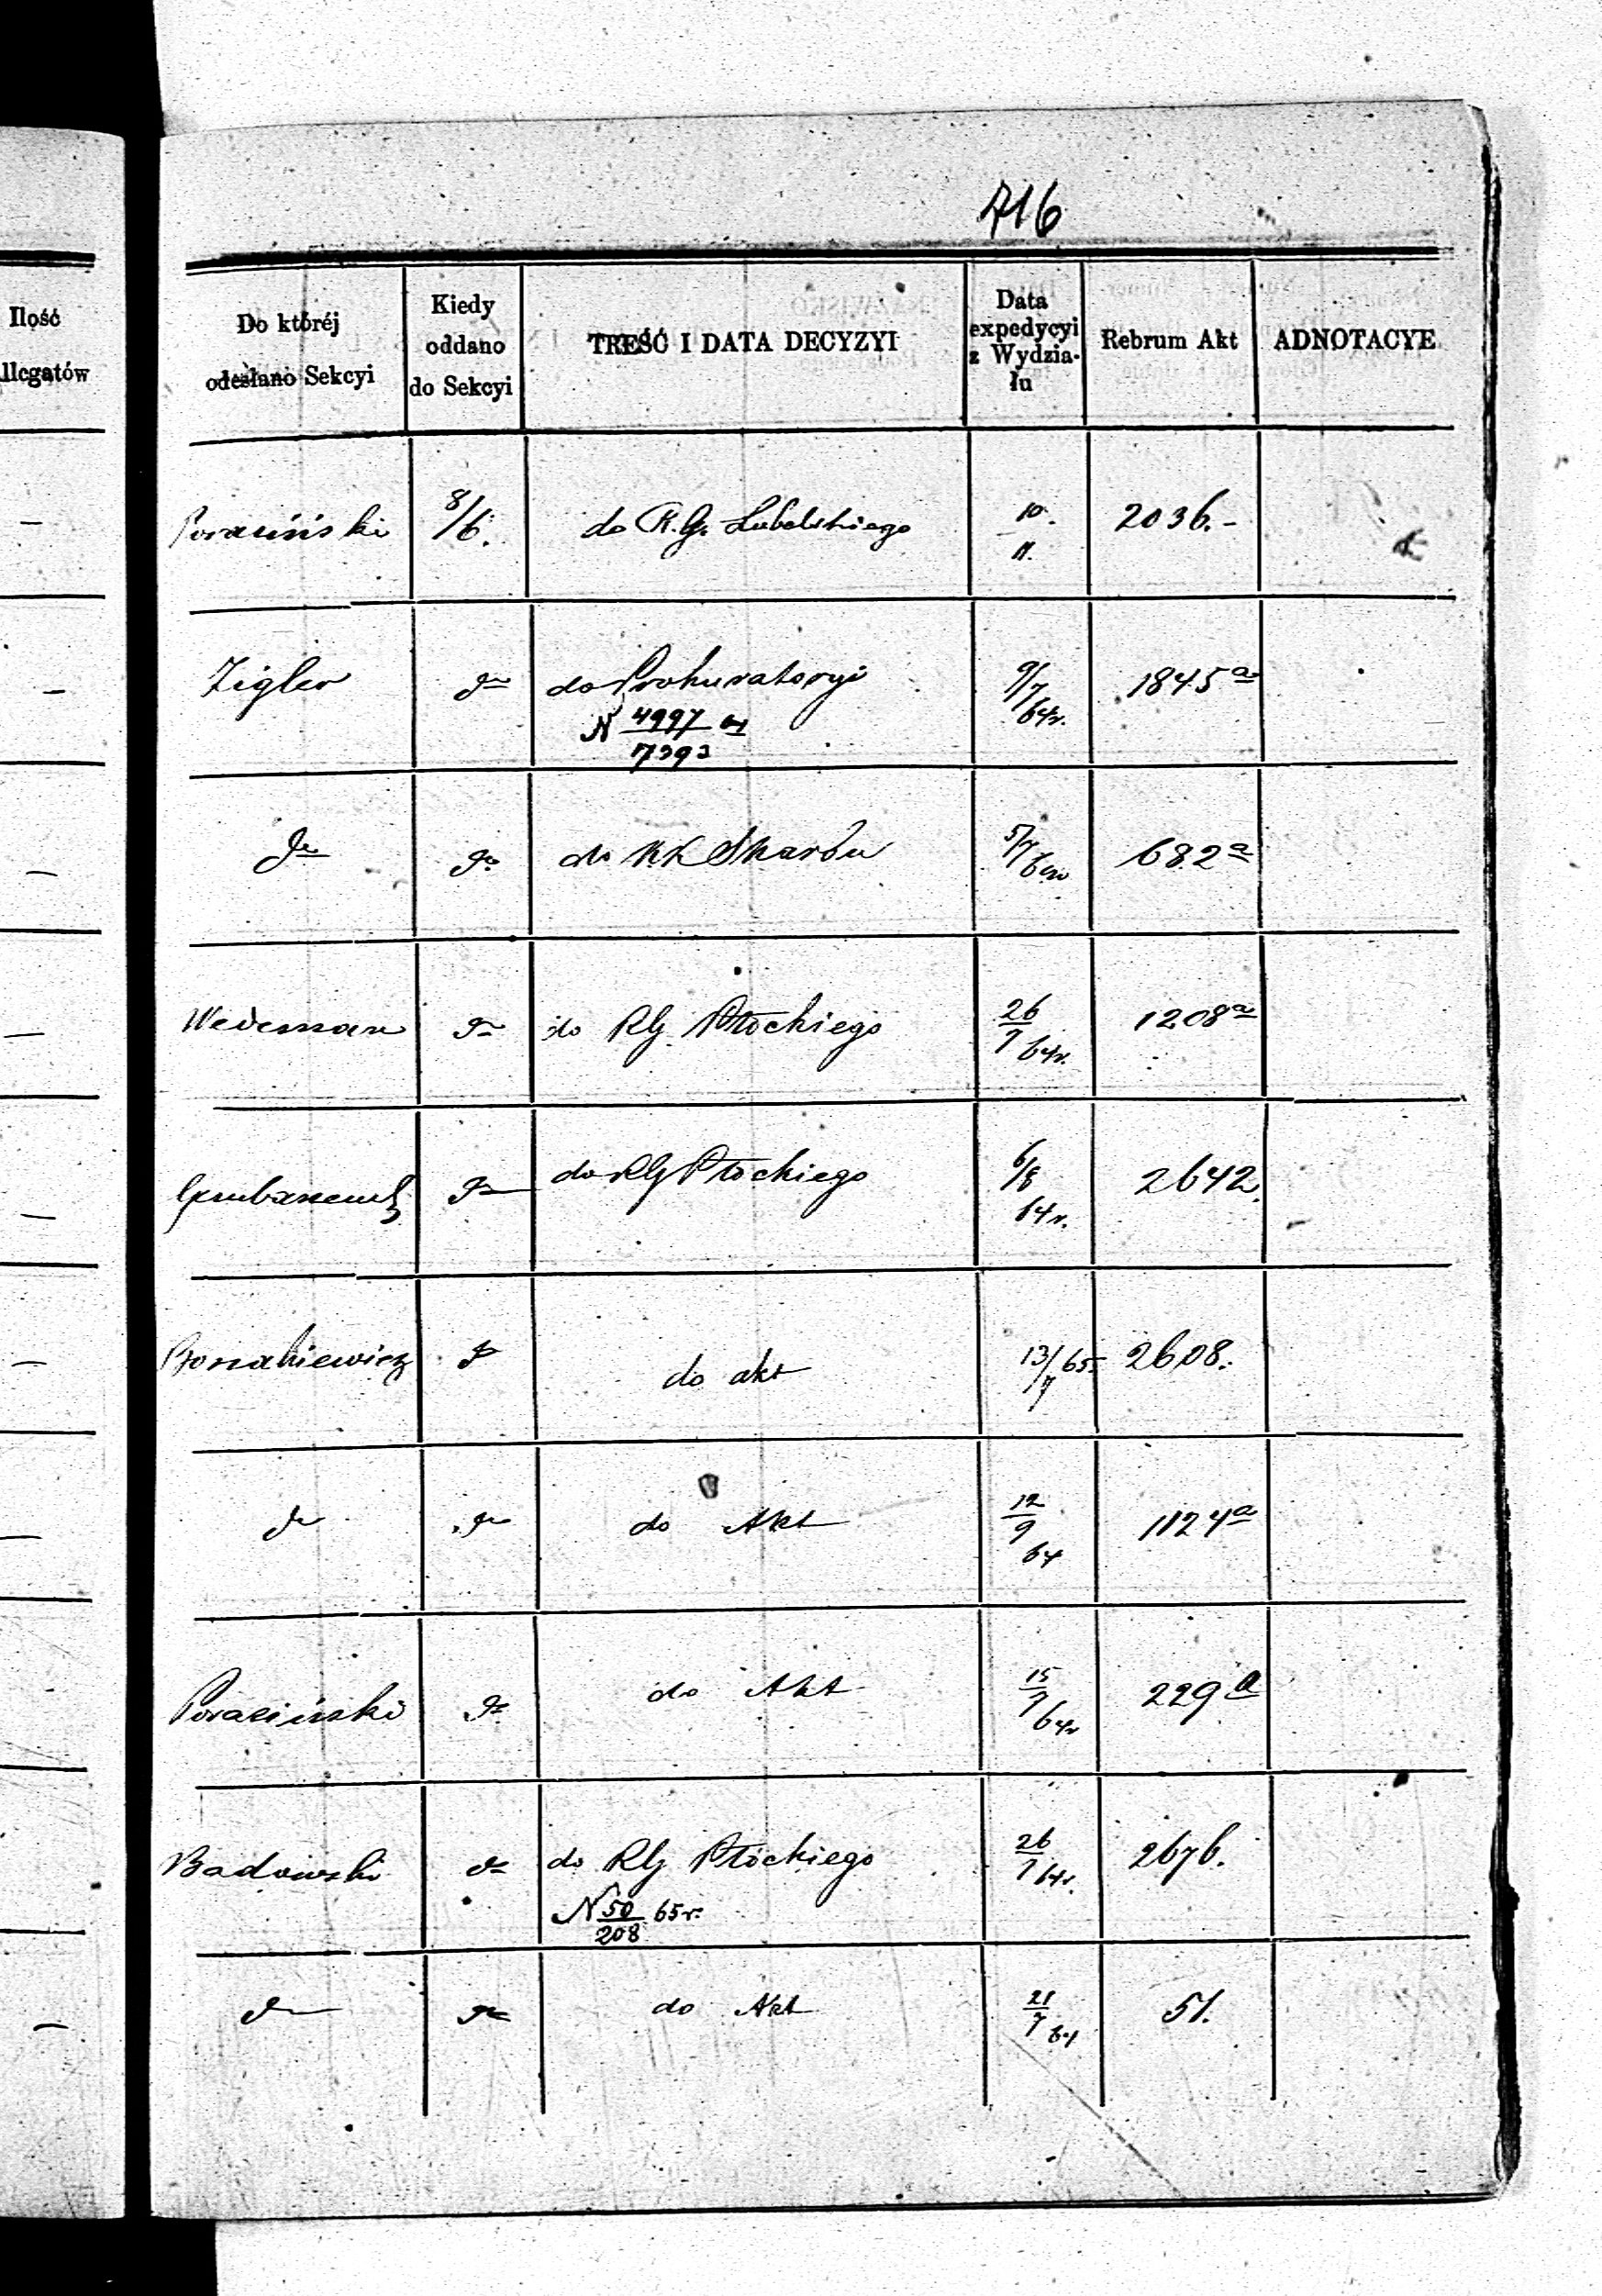 716
Ilość
llegatów
Do któréj
odesłano Sekcyi
Kiedy
oddano
do Sekcyi
TREŚĆ I DATA DECYZYI
Data
expedycyi
z Wydzia-
łu
Rebrum Akt
ADNOTACYE
— Poraziński 8/6. do R.G. Lubelskiego 10. 11. 2036.-
— Zigler do Prokuratoryi 9/7 64r. 1845 a
N 4997 64
7393
— do KK Skarbu 5/7 682 a
— Wedeman do RG Płockiego 26/7 64r. 1208 a
— do RG Płockiego 6/8 64r. 2642.
— Borzakiewicz do akt 13/7 65 2608.
— do Akt 12/9 64 1124 a
— Poraziński do Akt 15/7 64r 229 a
Badowski do RG Płockiego 26/7 64r. 2676.
N 50 65r.
208
— do Akt 21/7 64 51.